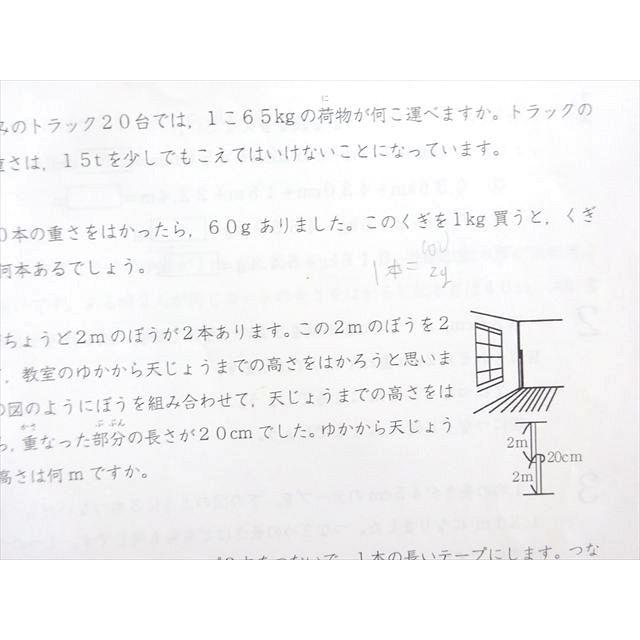 みのトラック20台では，1こ65kgの荷物が何こ運べますか。トラックの
重さは，15tを少しでもこえてはいけないことになっています。
0本の重さをはかったら，60gありました。このくぎを1kg買うと，くぎ
何本あるでしょう。
1本=
2g
ちょうど2mのぼうが2本あります。この2mのぼうを2
，教室のゆかから天じょうまでの高さをはかろうと思いま
の図のようにぼうを組み合わせて，天じょうまでの高さをは
ら，重なった部分の長さが20cmでした。ゆかから天じょう
高さは何mですか。
2m
20cm
2m
1本の長いテープにします。つな